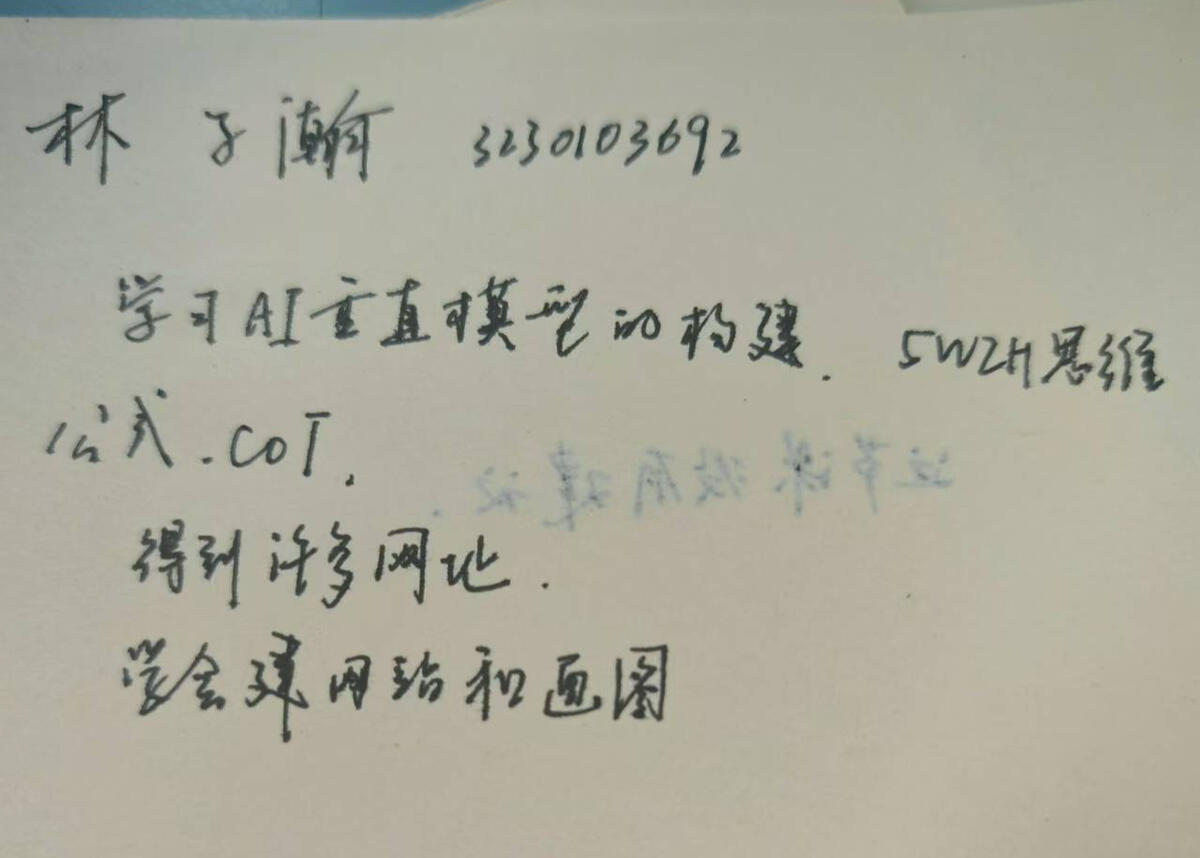 林子瀚 3230103692
学习AI垂直模型的构建. 5W2H思维
公式.COT.
这节课没有建议.
得到许多网址.
学会建网站和画图